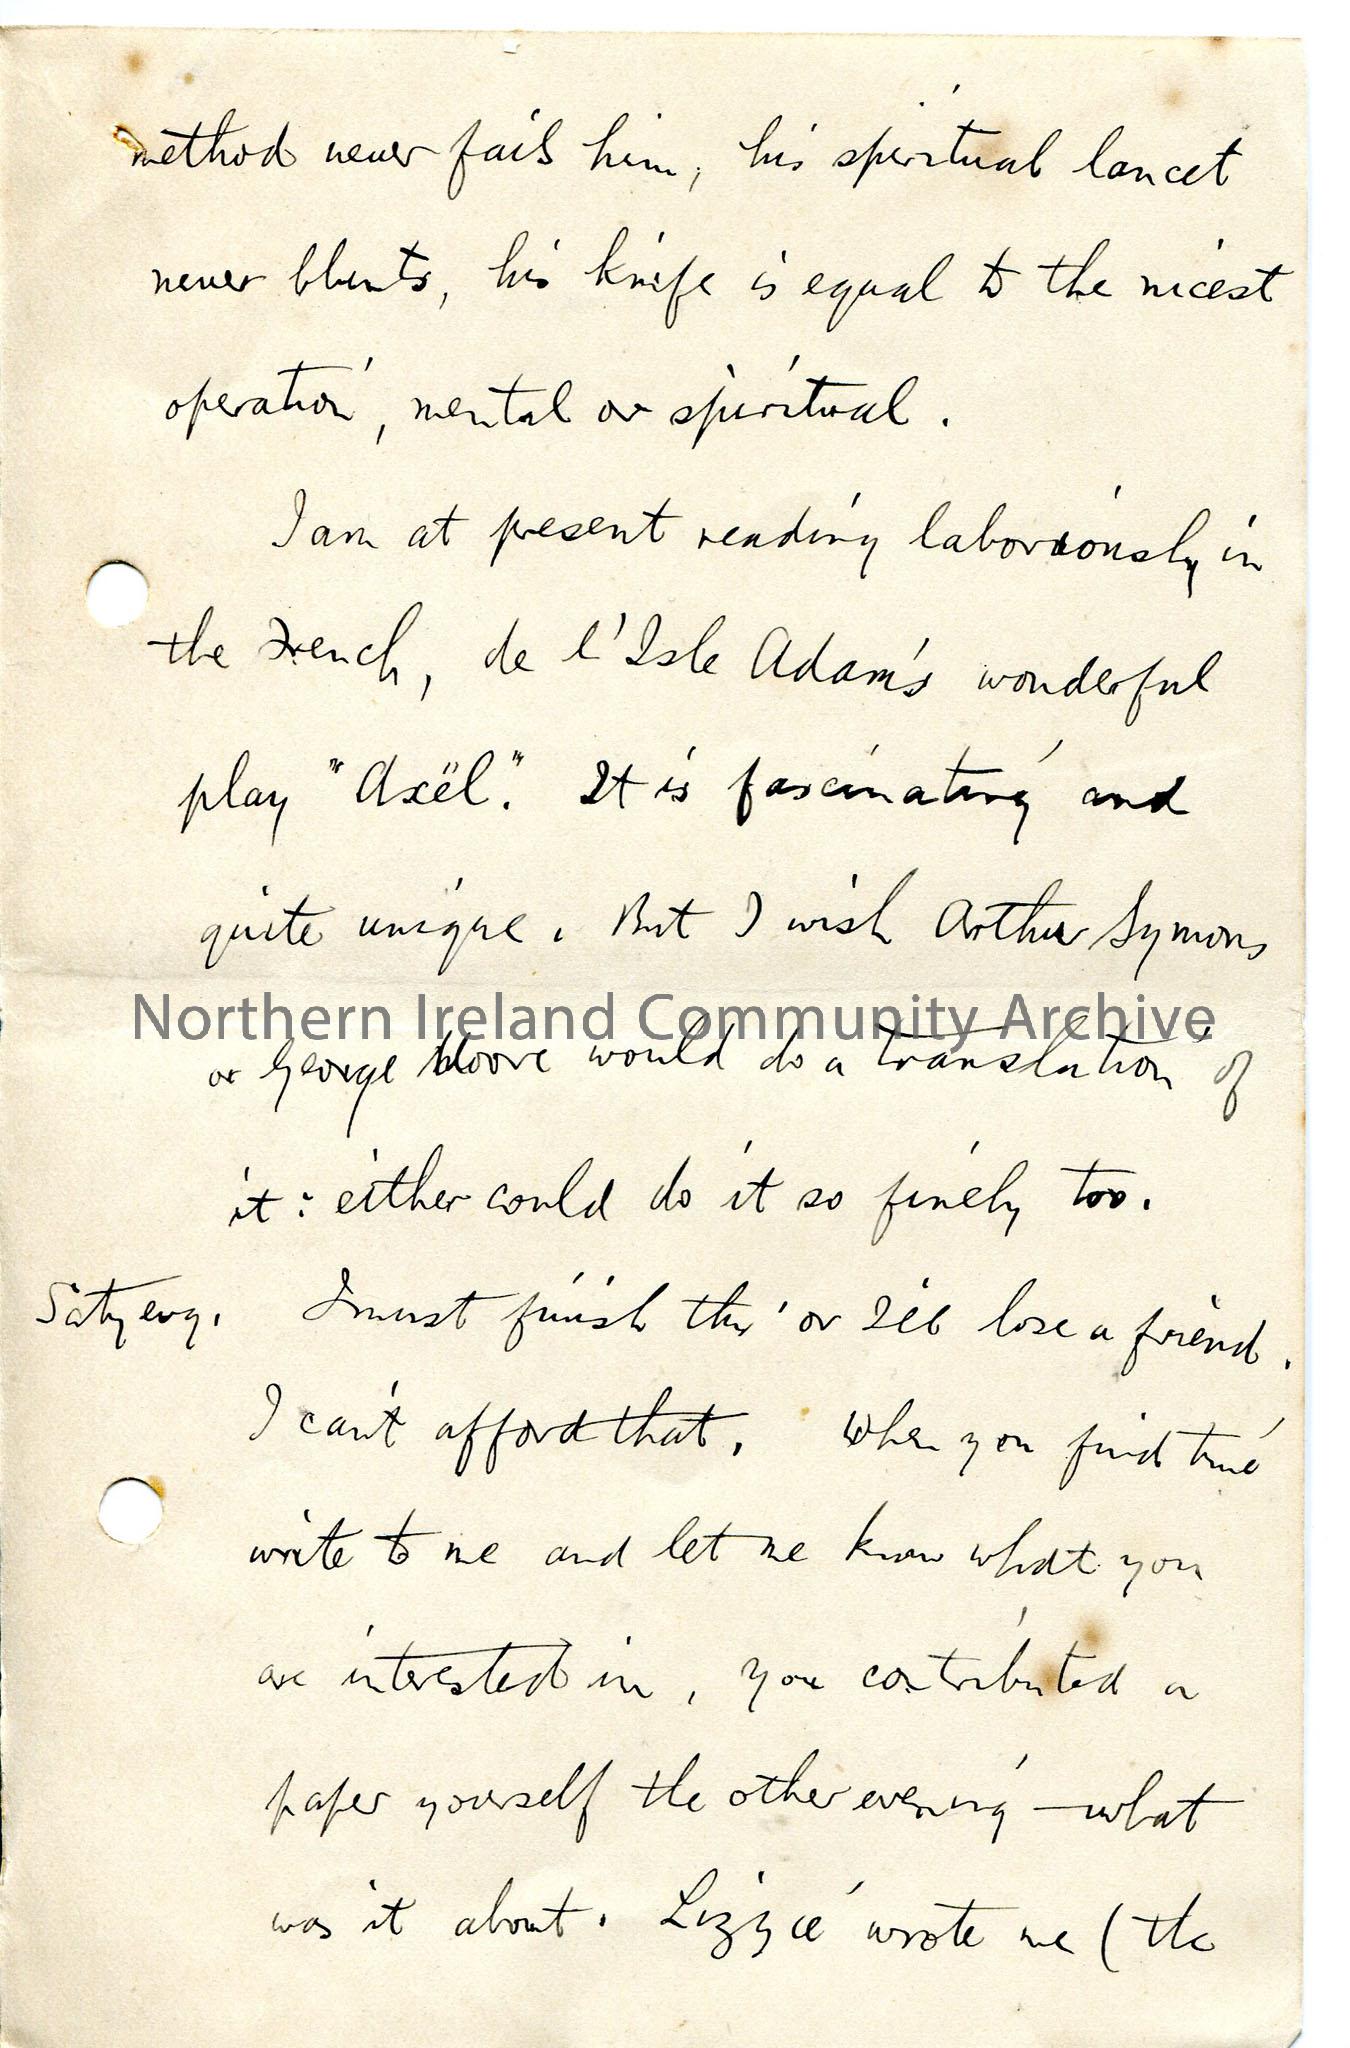 method never fails him, his spiritual lancet
never blunts, his knife is equal to the nicest
operation, mental or spiritual.
I am at present reading laboriously in
the French, de l'Isle Adam's wonderful
play "Axël". It is fascinating and
quite unique. But I wish Arthur Symons
Northern Ireland Community Archive
or George Moore would do a translation of
it: either could do it so finely too.
Saty evg. I must finish this or I'll lose a friend.
I can't afford that. When you find time
write to me and let me know what you
are interested in, you contributed a
paper yourself the other evening – what
was it about. Lizzie wrote me (the